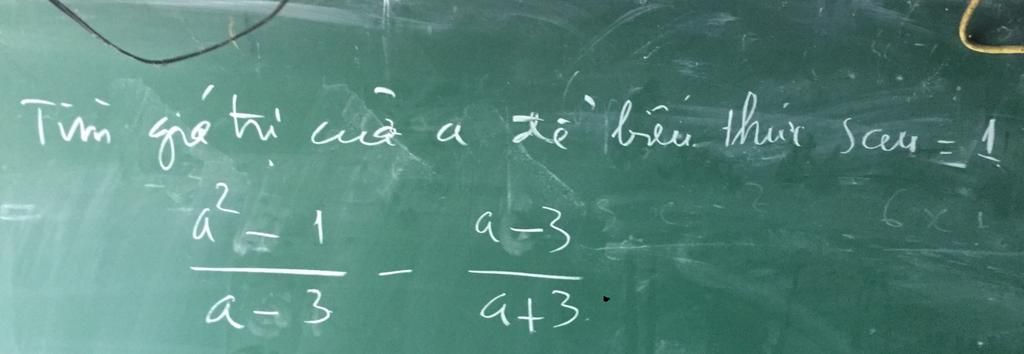 Tìm giá trị của a để biểu thức sau = 1
a² - 1 / a - 3 - a - 3 / a + 3